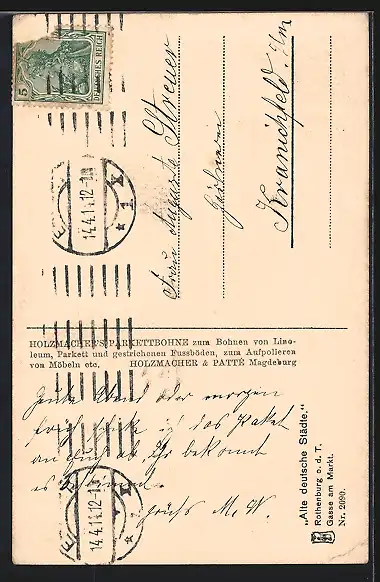 5
DEUTSCHES REICH
14.4.14.12-1N
* 1 *
Frau Auguste Streuer
Kranichfeld. Ilm
HOLZMACHER'S PARKETTBOHNE zum Bohnen von Lino-
leum, Parkett und gestrichenen Fussböden, zum Aufpolieren
von Möbeln etc. HOLZMACHER & PATTÉ Magdeburg
Heute Abend oder morgen
früh schick ich das Paket
an Euch ab Ihr bekommt
es
Gruß M. W.
14.4.14.12-1N
„Alte deutsche Städte."
Rothenburg o. d. T.
Gasse am Markt.
Nr. 2090.